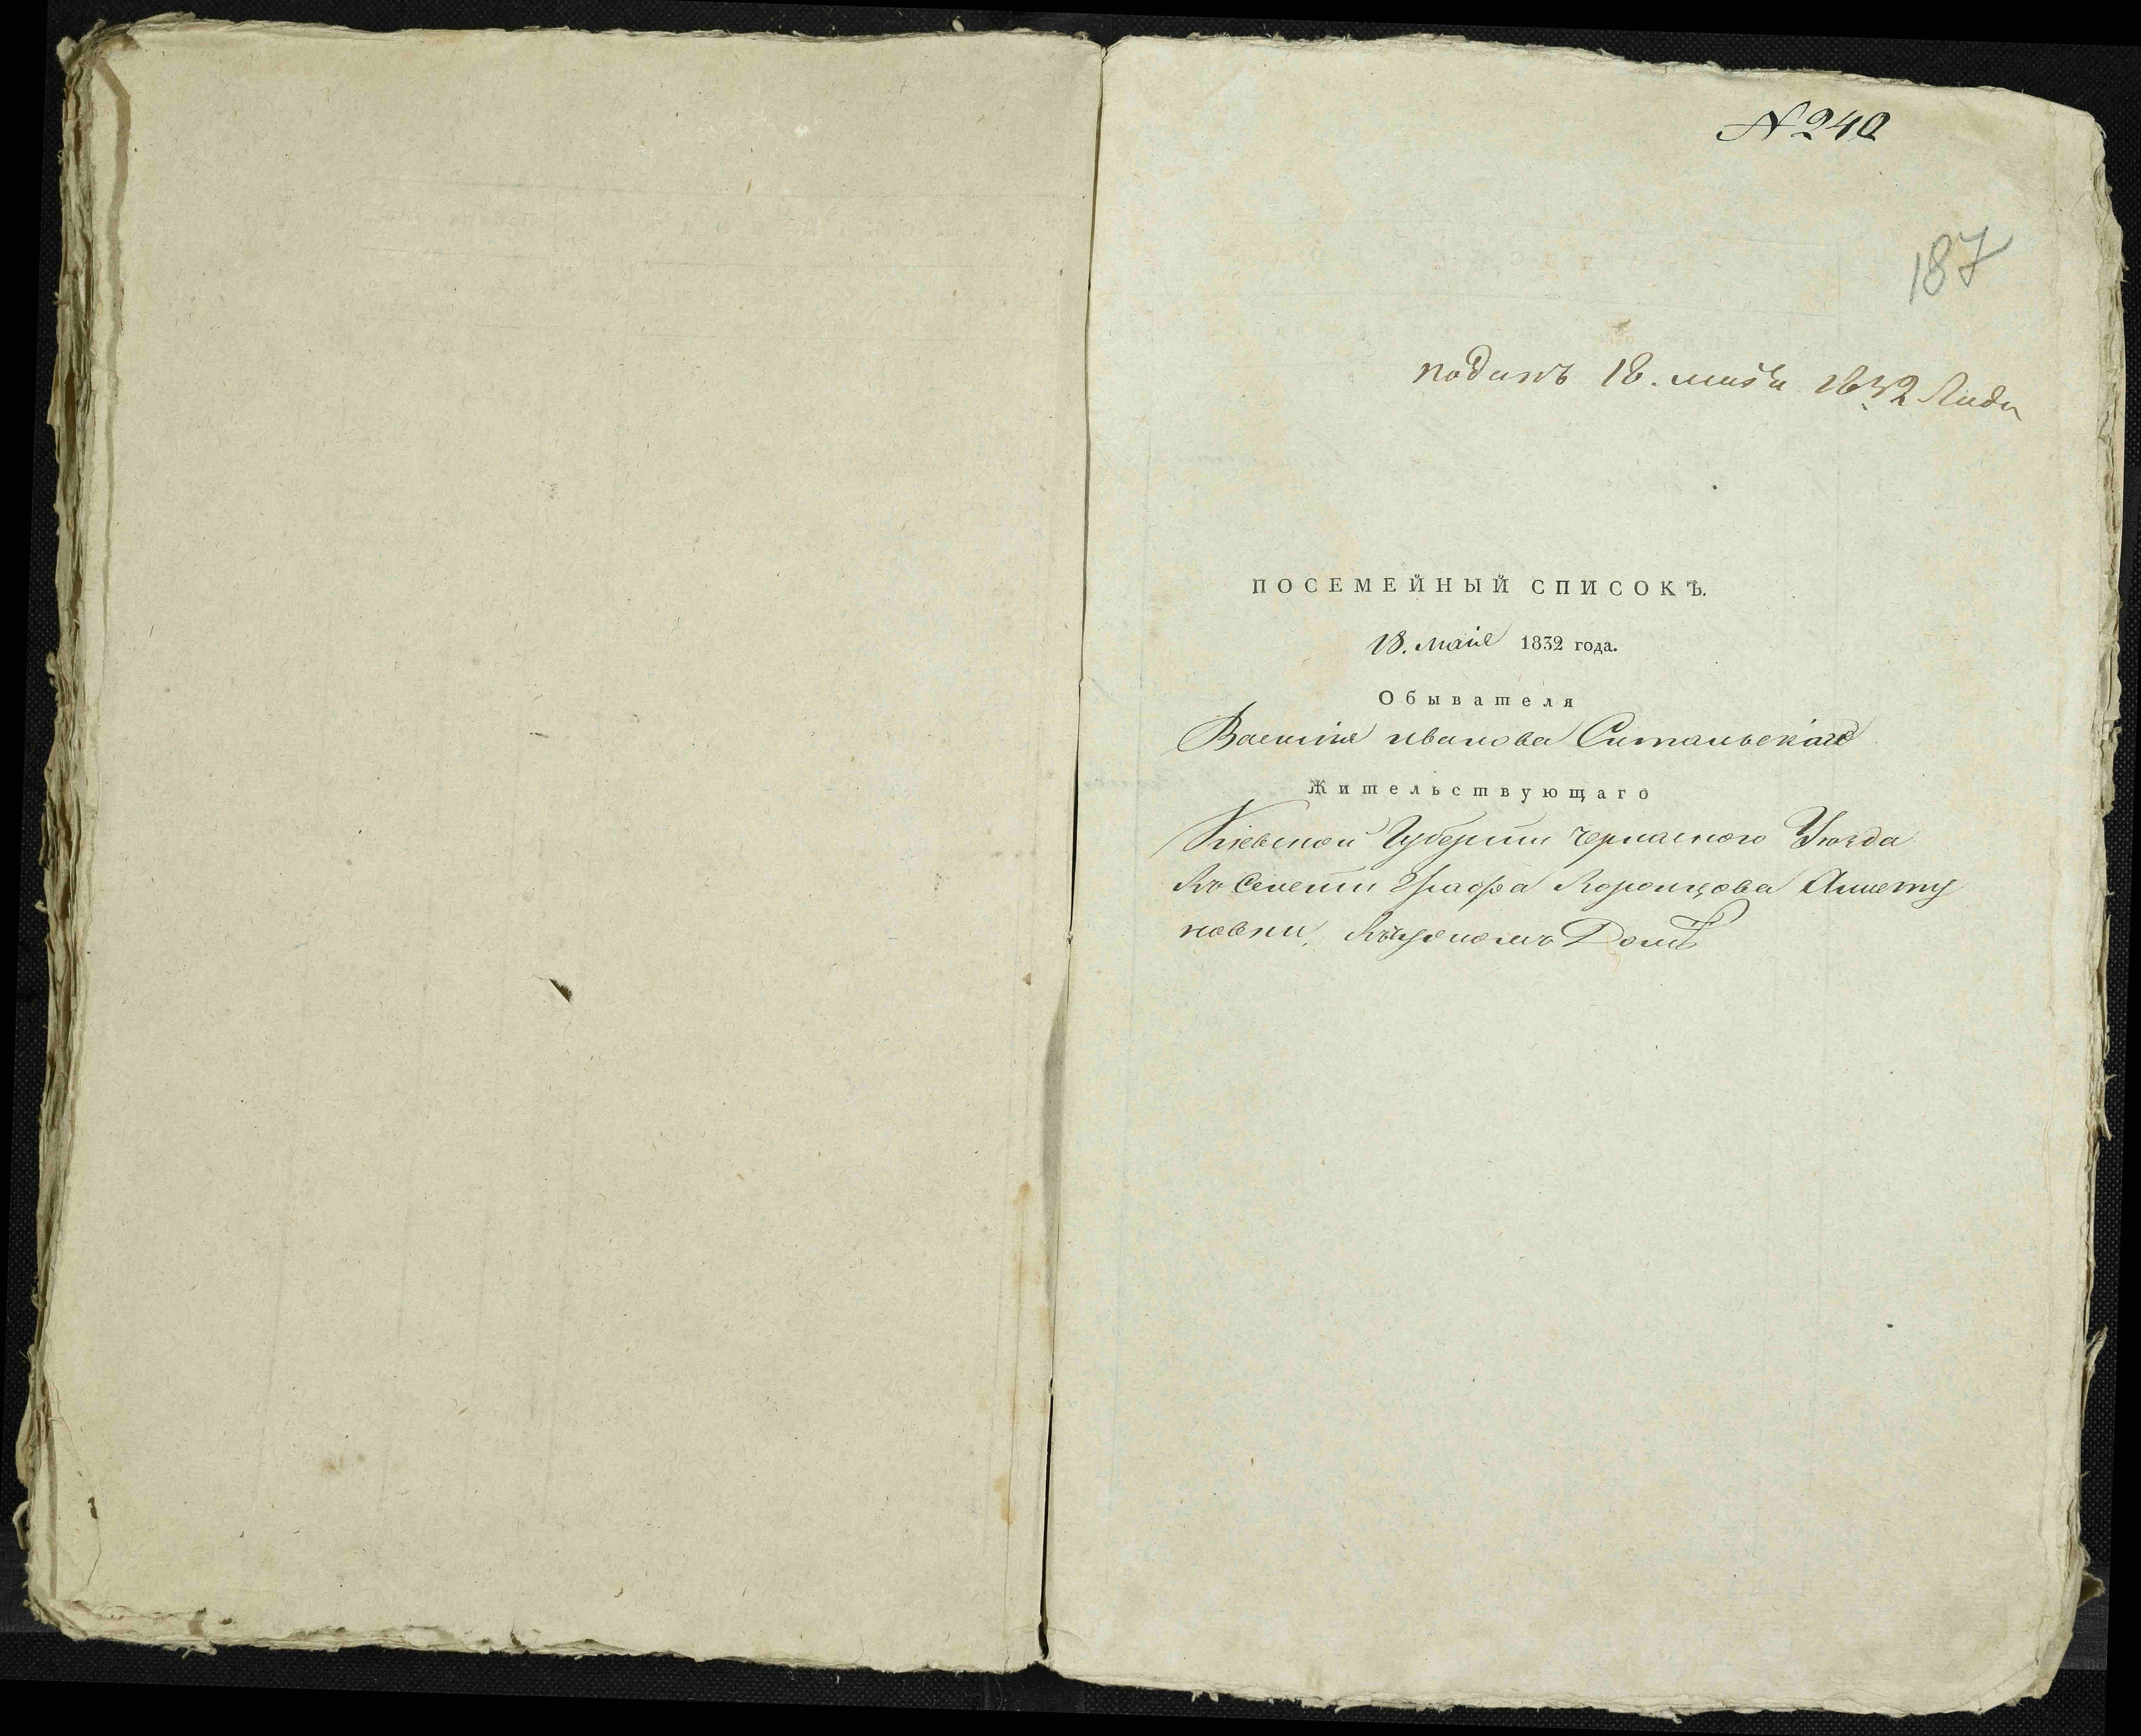 N 240
187
поданъ 18. маія 1832 года
ПОСЕМЕЙНЫЙ СПИСОКЪ.
18. маія 1832 года.
Обывателя
Василія иванова
Жительствующаго
Кіевской Губерніи Черкаского Уѣзда
Въ Селеніи Графа Воронцова
Домѣ